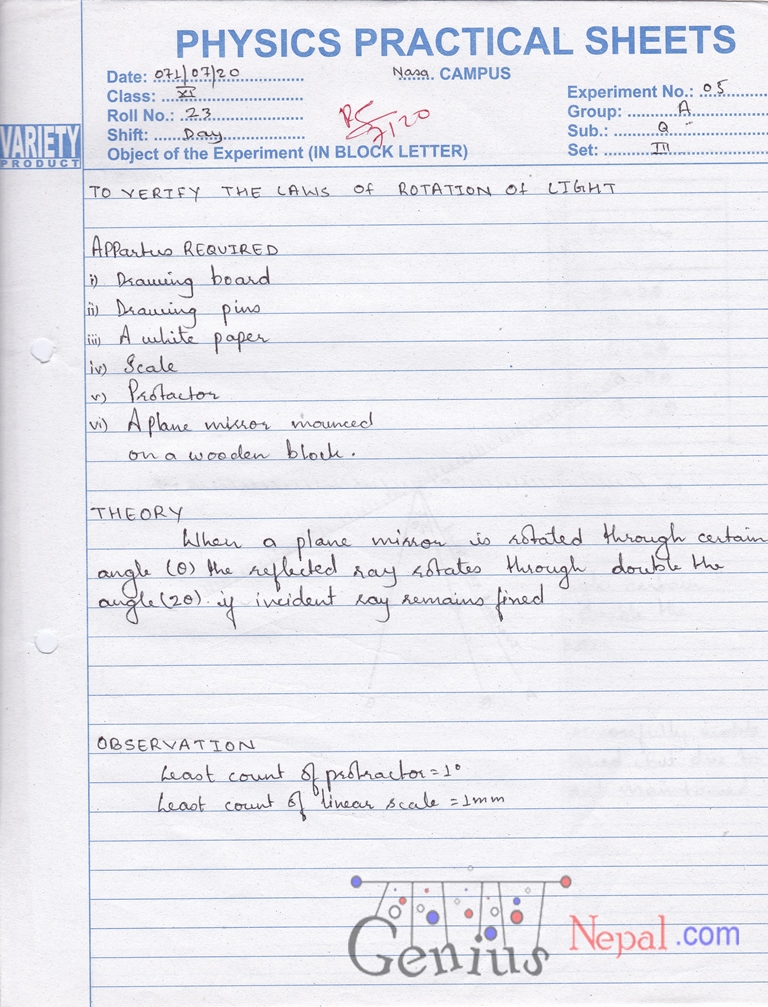 PHYSICS PRACTICAL SHEETS
Date: 071/07/20
Nasa. CAMPUS
Class: XI
Experiment No.: 05
Roll No.: 23
Group: A
Shift: Day
Sub.: Q
Object of the Experiment (IN BLOCK LETTER)
Set: III
7/20
VARIETY
PRODUCT
TO VERIFY THE LAWS of ROTATION Of LIGHT
APPartus REQUIRED
i) Drawing board
ii) Drawing pins
iii) A white paper
iv) Scale
v) Protactor
vi) A plane mirror mounced
on a wooden block.
THEORY
When a plane mirror is rotated through certain
angle (θ) the reflected ray rotates through double the
angle (2θ). if incident ray remains fined
OBSERVATION
Least count of protractor = 1°
Least count of linear scale = 1mm
Genius Nepal.com